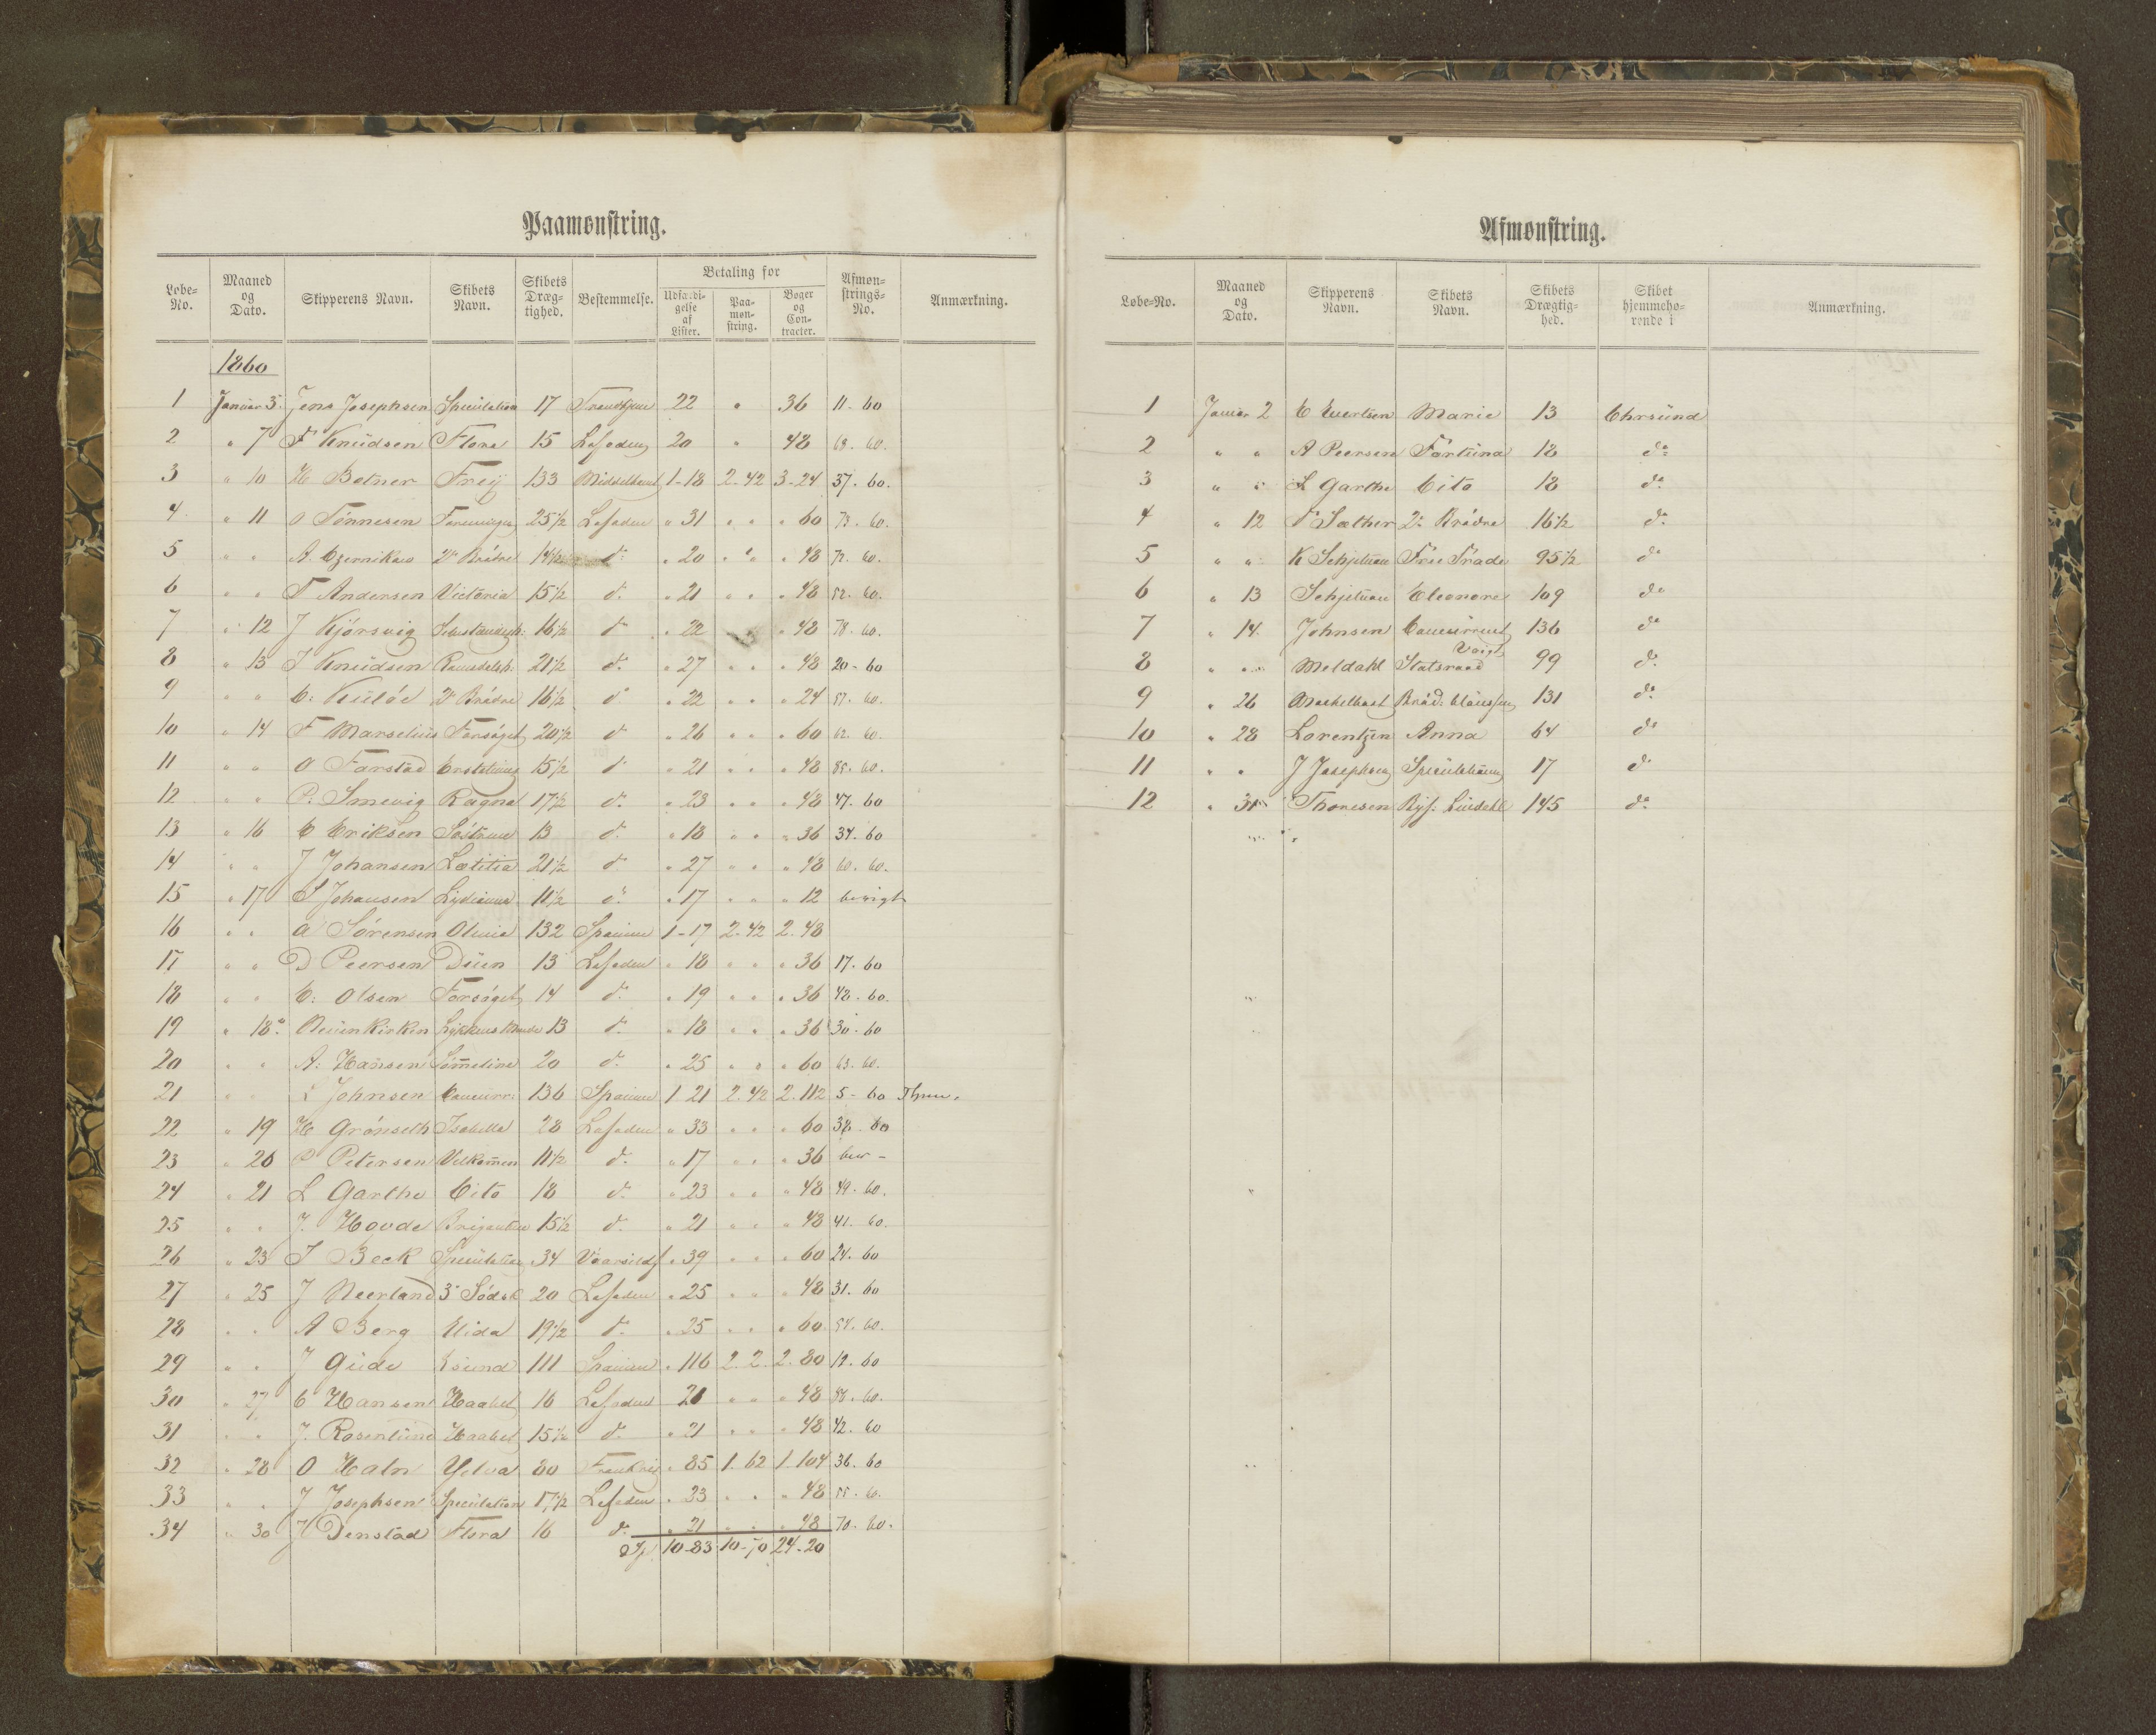 Paamønstring.
Løbe-No. Maaned og Dato. Skipperens Navn. Skibets Navn. Skibets Dræg-tighed. Bestemmelse. Betaling for Udfærdi-gelse af Lister. Paa-møn-string. Bøger og Con-tracter. Afmøn-strings-No. Anmærkning.
1860
1 Januar 3. Jens Josephsen Speculation 17 22 " 36 11-60
2 " 7 F Knudsen Flora 15 Lofoden 20 " 48 68-60.
3 " 10 H Botner Freij 133 1-18 2-42 3-24 37-60.
4 " 11 O Tönnesen 25½ Lofoden " 31 " " " 60 73-60.
5 " " A. Czernikow 2de Brödre 14½ do " 20 " " " 48 72-60.
6 " " T Andersen Victoria 15½ do " 21 " " " 48 52-60.
7 " 12 J Kjörsvig 16½ do " 22 " 48 78-60.
8 " 13 J Knudsen 21½ do " 27 " " " 48 20-60
9 " " C: 2de Brödre 16½ do " 22 " " " 24 57-60.
10 " 14 F Marselius Forsöget 20½ do " 26 " " " 60 62-60.
11 " " O Farstad 15½ do " 21 " " " 48 85-60.
12 " " P. Smevig Ragna 17½ do " 23 " " " 48 47-60
13 " 16 C Eriksen 13 do " 18 " " " 36 34-60
14 " " J Johansen Lætitia 21½ do " 27 " " " 48 60-60.
15 " 17 S Johansen 11½ do " 17 " " " 12
16 " " A Sörensen Olivia 132 Spanien 1-17 2-42 2-48
17 " " D Peersen Duen 13 Lofoden " 18 " " " 36 17-60
18 " " C: Olsen Forsöget 14 do " 19 " " " 36 48-60.
19 " 18 Neuenkirken 13 do " 18 " " " 36 30-60
20 " " A. Hansen 20 do " 25 " " " 60 63-60.
21 " " L Johnsen Concurr: 136 Spanien 1 21 2-42 2.112 5-60
22 " 19 H Grönseth Isabella 28 Lofoden " 33 " " " 60 38-60
23 " 20 P Petersen Velkommen 11½ do " 17 " " " 36
24 " 21 L Garthe Cito 18 do " 23 " " " 48 49-60.
25 " " J. Hovde 15½ do " 21 " " " 48 41-60.
26 " 23 J Beck Speculation 34 Vaarsildf " 39 " " " 60 24-60
27 " 25 J Neerland 3 Södsk 20 Lofoden " 25 " " " 48 31-60
28 " " A Berg Elida 19½ do " 25 " " " 60 54-60.
29 " " J Gude 111 Spanien " 116 2-2 2-80 19-60
30 " 27 C Hansen Haabet 16 Lofoden 20 " " " 48 58-60.
31 " " J. Rosenlund Haabet 15½ do " 21 " " " 48 42-60
32 " 28 O Haln Ydva 80 Frankrig " 85 1-62 1-104 36-60
33 " " J Josephsen Speculation 17½ Lofoden " 23 " " " 48 55-60.
34 " 30 J Denstad Flora 16 do " 21 " " " 48 70-60.
10-83 10-70 24-20
Afmønstring.
Løbe-No. Maaned og Dato. Skipperens Navn. Skibets Navn. Skibets Drægtig-hed. Skibet hjemmehø-rende i Anmærkning.
1 Januar 2 C Evertsen Marie 13 Chrsund
2 " " A Peersen Fortuna 18 do
3 " " L Garthe Cito 18 do
4 " 12 Sæther 2de Brödre 16½ do
5 " " K Schjelnæs Free Trade 95½ do
6 " 13 Schjelnæs Eleonore 109 do
7 " 14 Johnsen Concurrent 136 do
8 " " Meldahl Statsraad Voigt 99 do
9 " 26 Bröd: Claussen 131 do
10 " 28 Lorentzen Anna 64 do
11 " " J Josephsen Speculation 17 do
12 " 31 Thoresen 145 do